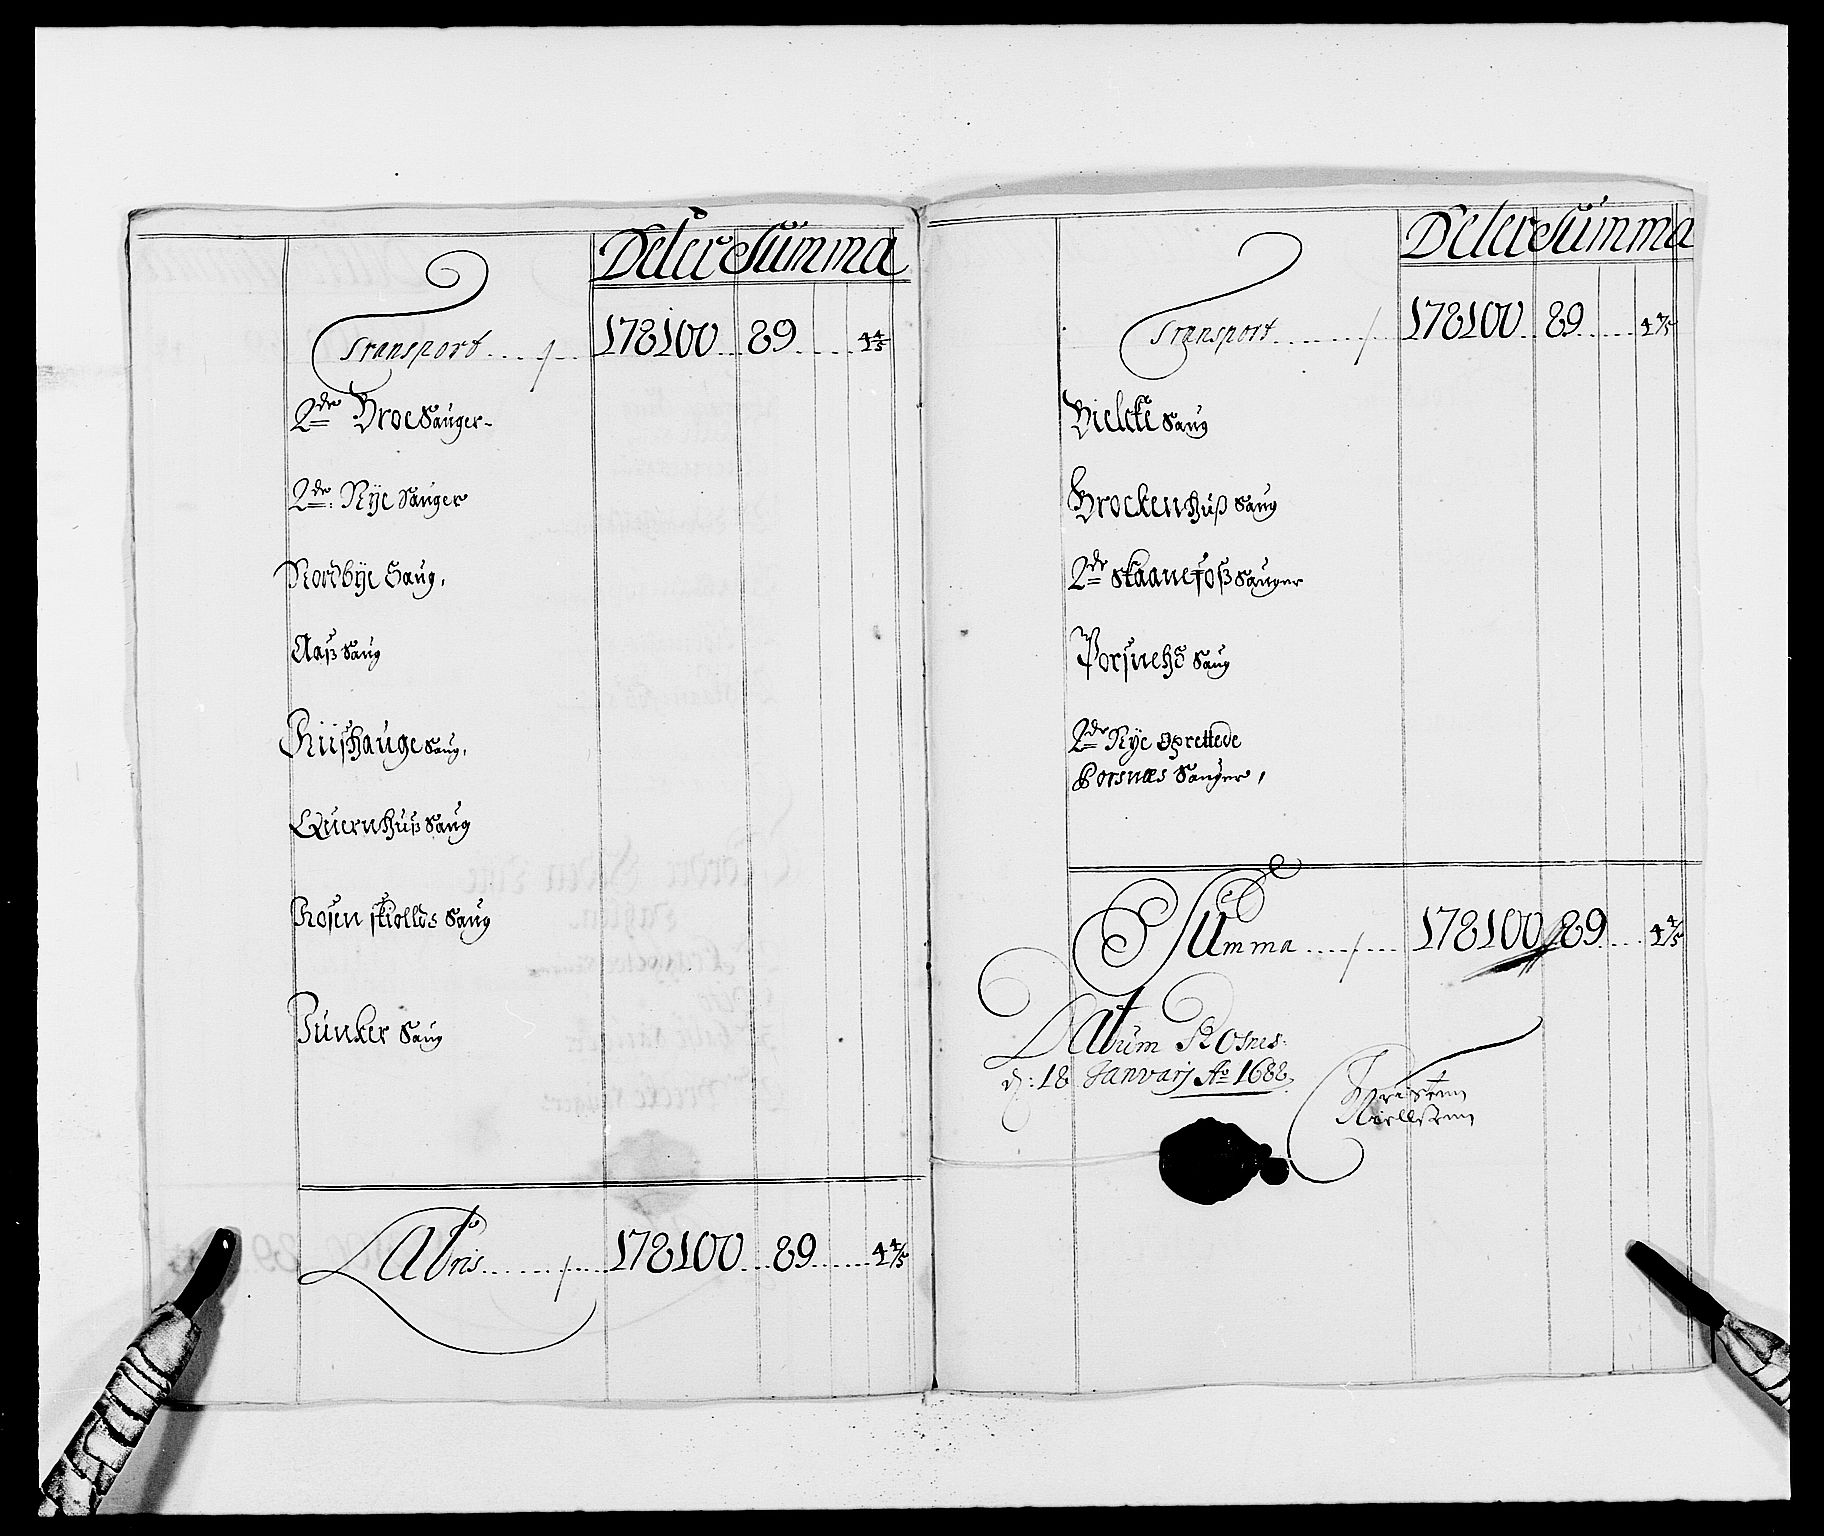 Deler Summa
Transport 178100 89 4 4/5
2de Broe Sauger
2de Rÿe Sauger
Nordbÿe Saug
Aaß Saug
Riishauge Saug
Quernhuß Saug
Rosenskiollds Saug
Junker Saug
Latris 178100 89 4 4/5
Deler Summa
Transport 178100 89 4 4/5
Bielcke Saug
Brockenhuß Saug
2de Skaanefoß Sauger
Porsnehs Saug
2de Rÿe oprettede
Porsnæs Sauger
Summa 178100 89 4 4/5
Datum Rosnes
d: 18 Januarj Ao 1688